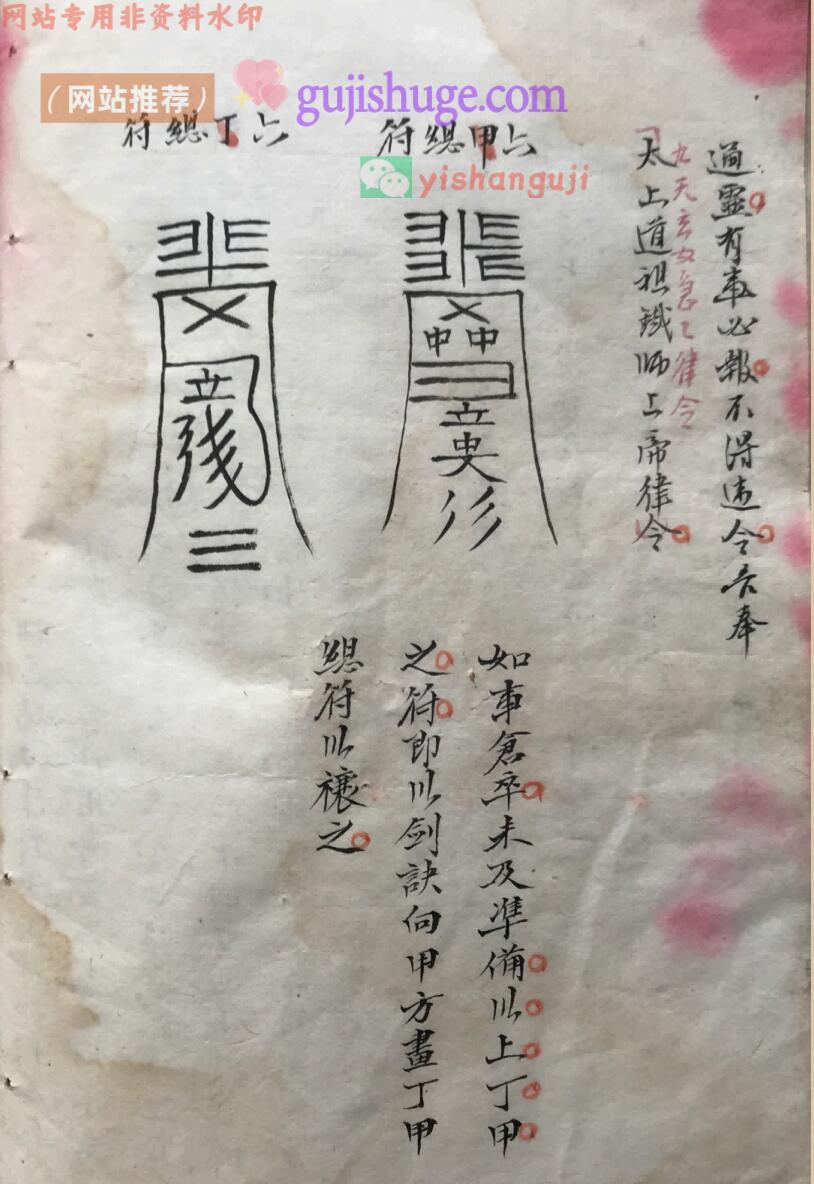 网站专用非资料水印
（网站推荐）
gujishuge.com
yishanguji
通靈有事必報不得违令吾奉
九天玄女急々律令
太上道祖鐵師上帝律令
六甲總符
六丁總符
如事倉卒未及準備以上丁甲
之符即以剑訣向甲方畫丁甲
總符以禳之